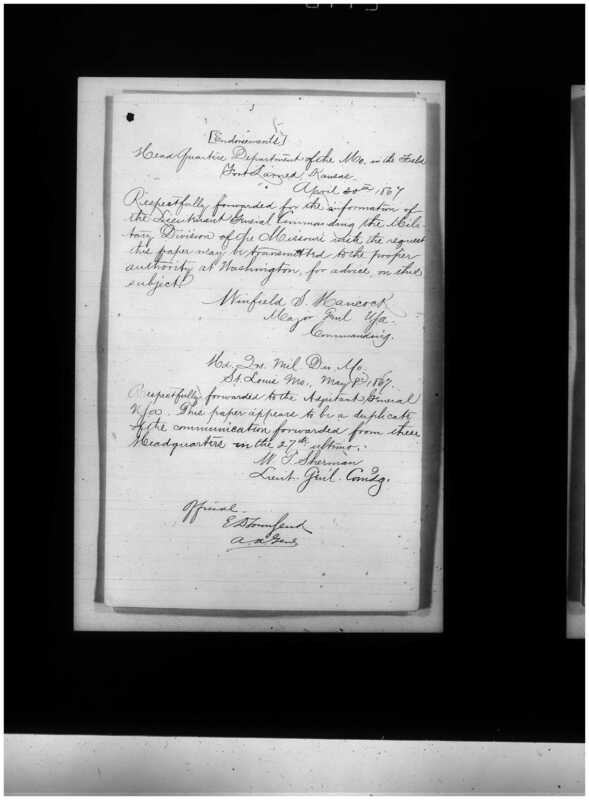 3
[Endorsements]
Head Quarters Department of the Mo. in the Field
Fort Larned Kansas.
April 20th 1867
Respectfully forwarded for the information of
the Lieutenant General Commanding the Mili-
tary Division of the Missouri with the request
this paper may be transmitted to the proper
authority at Washington, for advice, on this
subject.
Winfield S. Hancock
Major Genl USA.
Commanding.
Hd. Qrs. Mil. Div. Mo.
St. Louis Mo., May 8th, 1867.
Respectfully forwarded to the Adjutant General
USA. This paper appears to be a duplicate
of the communication forwarded from these
Headquarters on the 27th ultimo.
W. T. Sherman
Lieut. Gen'l. Comdg.
Official.
E D Townsend
A. A. Genl